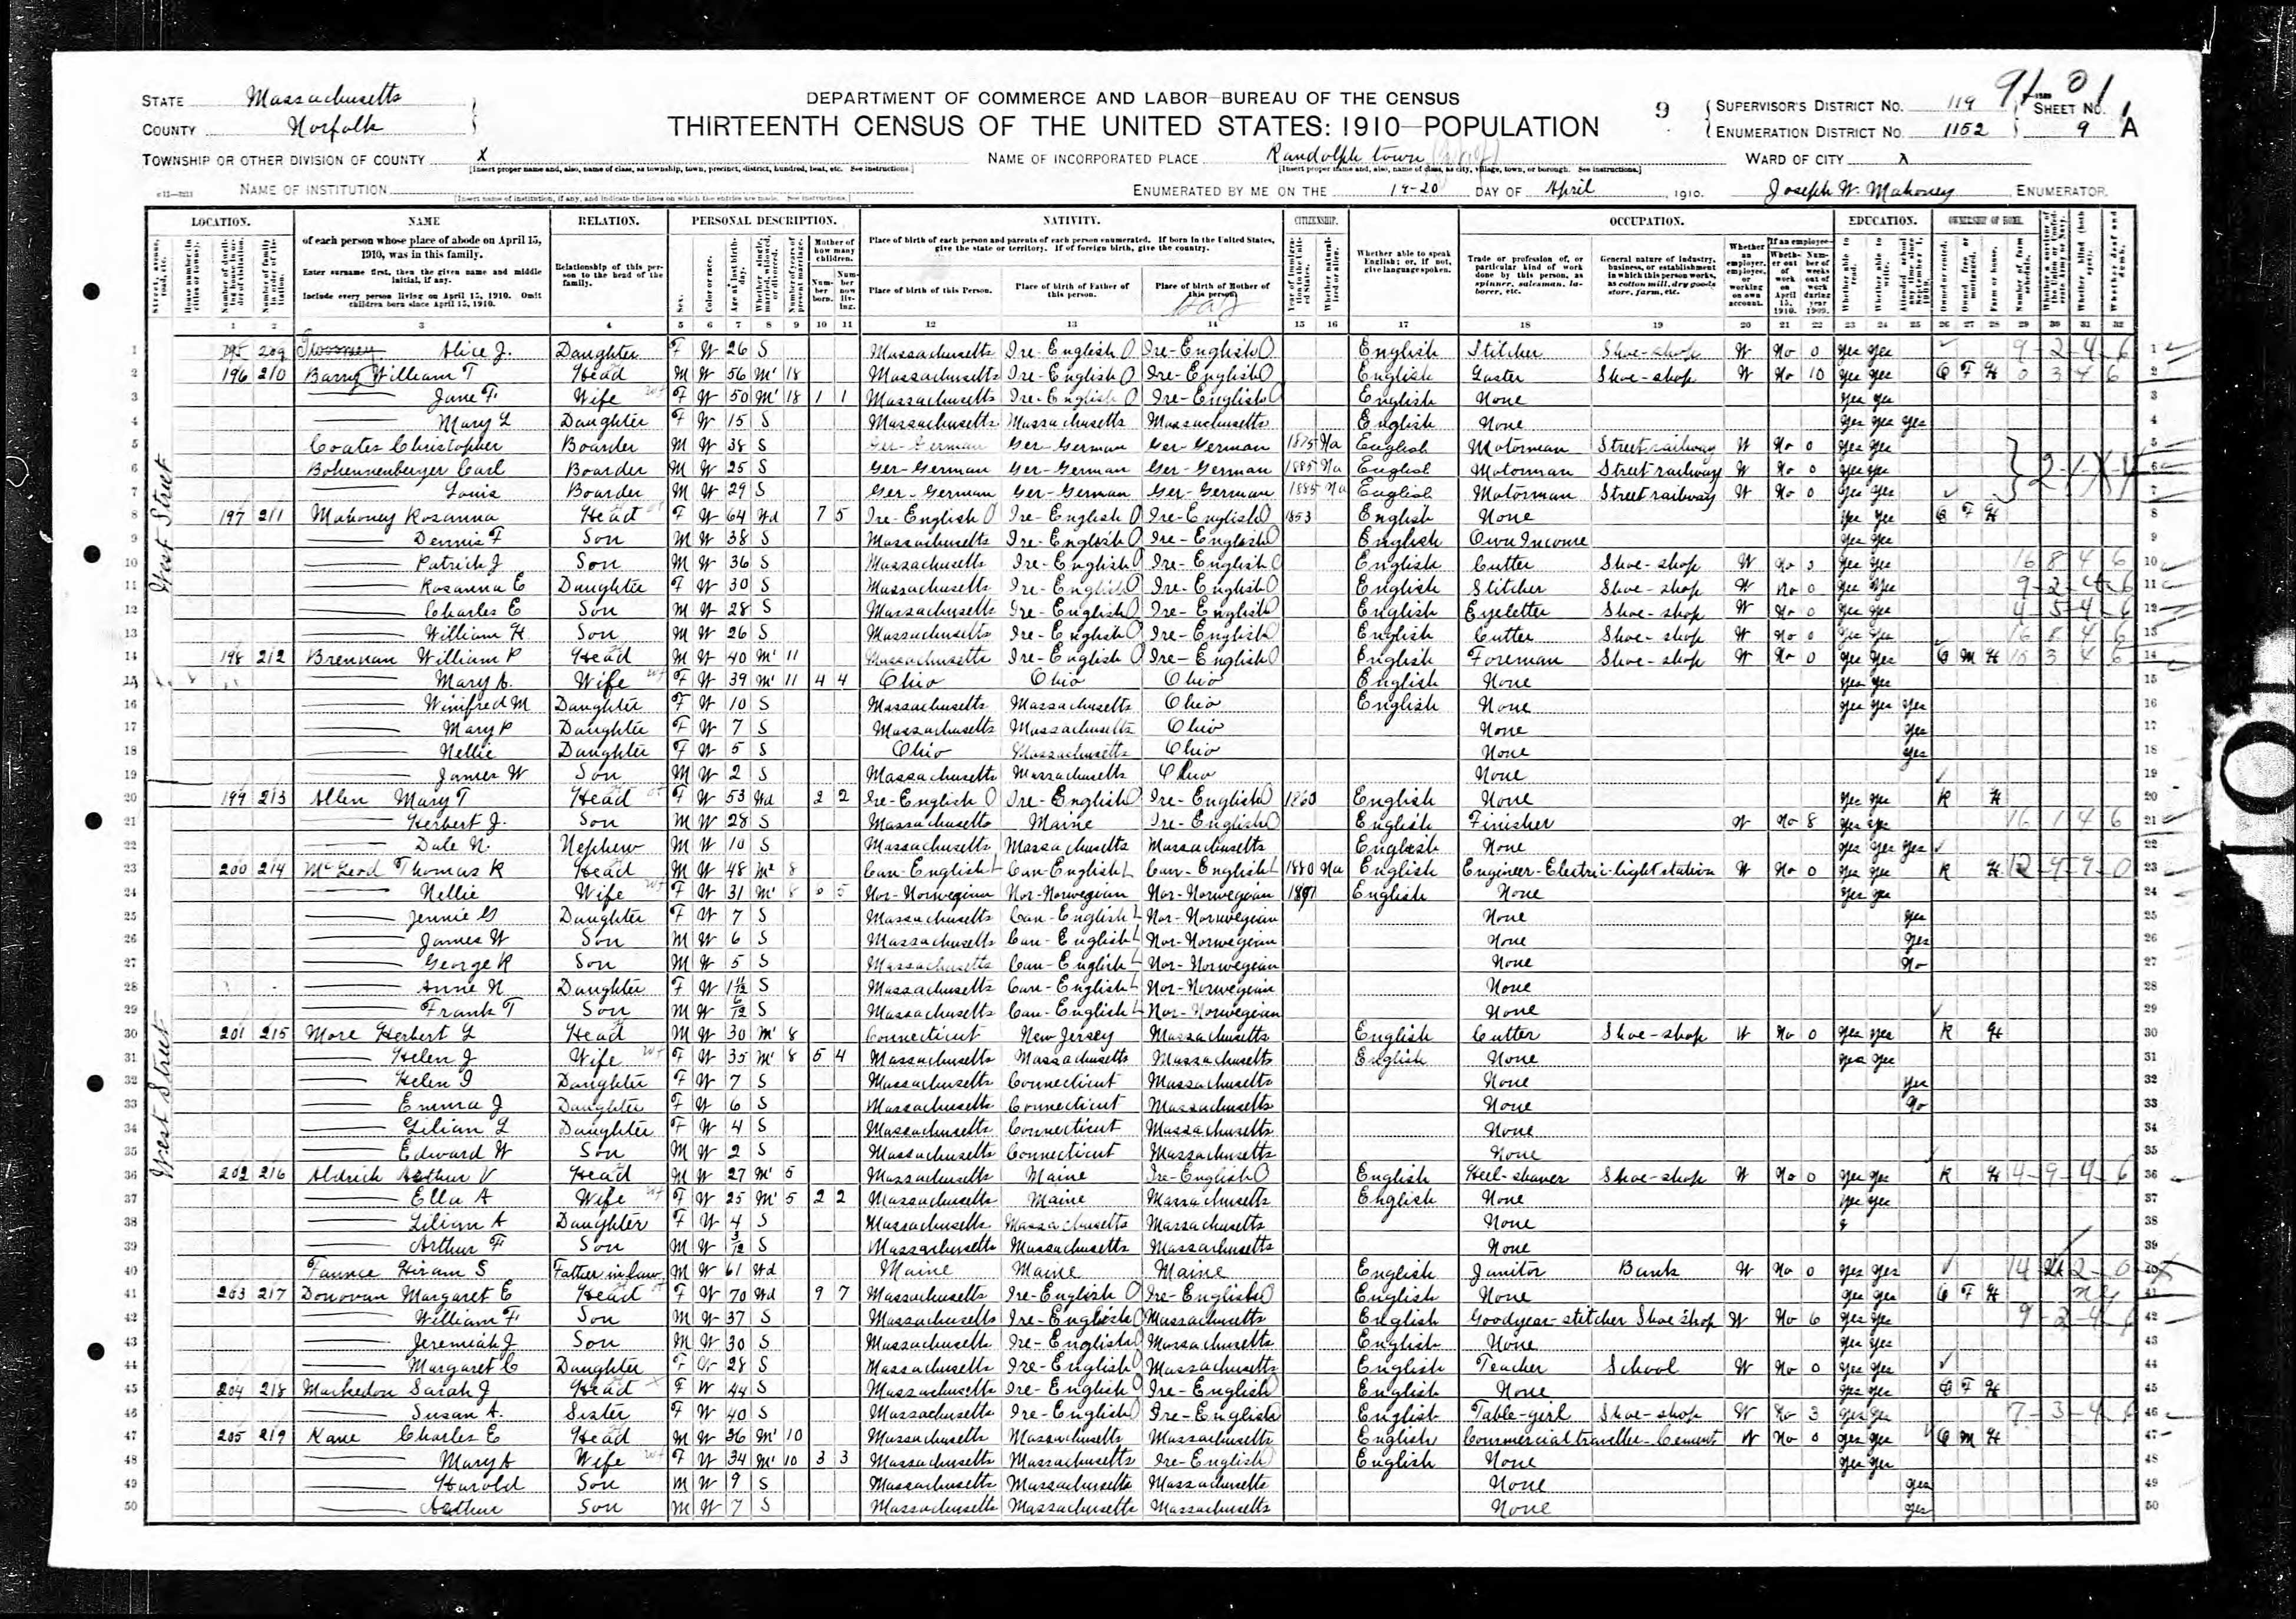 STATE Massachusetts
COUNTY Norfolk
TOWNSHIP OR OTHER DIVISION OF COUNTY X
[Insert proper name and, also, name of class, as township, town, precinct, district, hundred, beat, etc. See instructions.]
NAME OF INSTITUTION
[Insert name of institution, if any, and indicate the lines on which the entries are made. See instructions.]
DEPARTMENT OF COMMERCE AND LABOR—BUREAU OF THE CENSUS
THIRTEENTH CENSUS OF THE UNITED STATES: 1910—POPULATION
NAME OF INCORPORATED PLACE Randolph town
[Insert proper name and, also, name of class, as city, village, town, or borough. See instructions.]
ENUMERATED BY ME ON THE 19-20 DAY OF April, 1910. Joseph W. Mahoney ENUMERATOR.
9
SUPERVISOR'S DISTRICT No. 119
ENUMERATION DISTRICT No. 1152
SHEET No. 9 A
WARD OF CITY X
LOCATION. NAME RELATION. PERSONAL DESCRIPTION. NATIVITY. CITIZENSHIP. OCCUPATION. EDUCATION. OWNERSHIP OF HOME.
of each person whose place of abode on April 15, 1910, was in this family.
Enter surname first, then the given name and middle initial, if any.
Include every person living on April 15, 1910. Omit children born since April 15, 1910.
Relationship of this person to the head of the family.
Place of birth of each person and parents of each person enumerated. If born in the United States, give the state or territory. If of foreign birth, give the country.
Place of birth of this Person. Place of birth of Father of this person. Place of birth of Mother of this person.
Whether able to speak English; or, if not, give language spoken.
Trade or profession of, or particular kind of work done by this person, as spinner, salesman, laborer, etc.
General nature of industry, business, or establishment in which this person works, as cotton mill, dry goods store, farm, etc.
1 2 3 4 5 6 7 8 9 10 11 12 13 14 15 16 17 18 19 20 21 22 23 24 25 26 27 28 29 30 31 32
West Street
1 195 209 Alice J. Daughter F W 26 S Massachusetts Ire-English Ire-English English Stitcher Shoe-shop W No 0 Yes Yes
2 196 210 Barry William T Head M W 56 M1 18 Massachusetts Ire-English Ire-English English Laster Shoe-shop W No 10 Yes Yes O F H
3 Jane F. Wife F W 50 M1 18 1 1 Massachusetts Ire-English Ire-English English None Yes Yes
4 Mary L Daughter F W 15 S Massachusetts Massachusetts Massachusetts English None Yes Yes Yes
5 Coates Christopher Boarder M W 38 S Ger-German Ger-German Ger-German 1875 Na English Motorman Street railway W No 0 Yes Yes
6 Bohennenberger Carl Boarder M W 25 S Ger-German Ger-German Ger-German 1885 Na English Motorman Street railway W No 0 Yes Yes
7 Louis Boarder M W 29 S Ger-German Ger-German Ger-German 1885 Na English Motorman Street railway W No 0 Yes Yes
8 197 211 Mahoney Rosanna Head F W 64 Wd 7 5 Ire-English Ire-English Ire-English 1853 English None Yes Yes O F H
9 Dennis F Son M W 38 S Massachusetts Ire-English Ire-English English Own Income Yes Yes
10 Patrick J Son M W 36 S Massachusetts Ire-English Ire-English English Cutter Shoe-shop W No Yes Yes
11 Rosanna E Daughter F W 30 S Massachusetts Ire-English Ire-English English Stitcher Shoe-shop W No 0 Yes Yes
12 Charles E Son M W 28 S Massachusetts Ire-English Ire-English English Eyeletter Shoe-shop W No 0 Yes Yes
13 William H Son M W 26 S Massachusetts Ire-English Ire-English English Cutter Shoe-shop W No 0 Yes Yes
14 198 212 Brennan William P Head M W 40 M1 11 Massachusetts Ire-English Ire-English English Foreman Shoe-shop W No 0 Yes Yes O M H
15 Mary A. Wife F W 39 M1 11 4 4 Ohio Ohio Ohio English None Yes Yes
16 Winifred M Daughter F W 10 S Massachusetts Massachusetts Ohio English None Yes Yes Yes
17 Mary P Daughter F W 7 S Massachusetts Massachusetts Ohio None Yes
18 Nellie Daughter F W 5 S Ohio Massachusetts Ohio None Yes
19 James W Son M W 2 S Massachusetts Massachusetts Ohio None
20 199 213 Allen Mary T Head F W 53 Wd 2 2 Ire-English Ire-English Ire-English 1860 English None Yes Yes R H
21 Herbert J. Son M W 28 S Massachusetts Maine Ire-English English Finisher W No 8 Yes Yes
22 Dale N. Nephew M W 10 S Massachusetts Massachusetts Massachusetts English None Yes Yes Yes
23 200 214 McLeod Thomas R Head M W 48 M2 8 Can-English Can-English Can-English 1880 Na English Engineer-Electric-light station W No 0 Yes Yes R H
24 Nellie Wife F W 31 M1 8 5 Nor-Norwegian Nor-Norwegian Nor-Norwegian 1897 English None Yes Yes
25 Jennie G Daughter F W 7 S Massachusetts Can-English Nor-Norwegian None Yes
26 James W Son M W 6 S Massachusetts Can-English Nor-Norwegian None Yes
27 George R Son M W 5 S Massachusetts Can-English Nor-Norwegian None No
28 Annie N Daughter F W S Massachusetts Can-English Nor-Norwegian None
29 Frank T Son M W 6/12 S Massachusetts Can-English Nor-Norwegian None
30 201 215 More Herbert L Head M W 30 M1 8 Connecticut New Jersey Massachusetts English Cutter Shoe-shop W No 0 Yes Yes R H
31 Helen J Wife F W 35 M1 8 5 4 Massachusetts Massachusetts Massachusetts English None Yes Yes
32 Helen I Daughter F W 7 S Massachusetts Connecticut Massachusetts None Yes
33 Emma J Daughter F W 6 S Massachusetts Connecticut Massachusetts None No
34 Lilian L Daughter F W 4 S Massachusetts Connecticut Massachusetts None
35 Edward W Son M W 2 S Massachusetts Connecticut Massachusetts None
36 202 216 Aldrich Arthur V Head M W 27 M1 5 Massachusetts Maine Ire-English English Heel-shaver Shoe-shop W No 0 Yes Yes R H
37 Ella A Wife F W 25 M1 5 2 2 Massachusetts Maine Massachusetts English None Yes Yes
38 Lilian A Daughter F W 4 S Massachusetts Massachusetts Massachusetts None
39 Arthur F Son M W 3/12 S Massachusetts Massachusetts Massachusetts None
40 Faunce Hiram S Father in law M W 61 Wd Maine Maine Maine English Janitor Bank W No 0 Yes Yes
41 203 217 Donovan Margaret E Head F W 70 Wd 9 7 Massachusetts Ire-English Ire-English English None Yes Yes O F H
42 William F. Son M W 37 S Massachusetts Ire-English Massachusetts English Goodyear-stitcher Shoe shop W No 6 Yes Yes
43 Jeremiah J Son M W 30 S Massachusetts Ire-English Massachusetts English None Yes Yes
44 Margaret C Daughter F W 28 S Massachusetts Ire-English Massachusetts English Teacher School W No 0 Yes Yes
45 204 218 Mackedon Sarah J Head F W 44 S Massachusetts Ire-English Ire-English English None Yes Yes O F H
46 Susan A. Sister F W 40 S Massachusetts Ire-English Ire-English English Table-girl Shoe-shop W No 3 Yes Yes
47 205 219 Kane Charles E Head M W 36 M1 10 Massachusetts Massachusetts Massachusetts English Commercial traveller-Cement W No 0 Yes Yes O M H
48 Mary A Wife F W 34 M1 10 3 3 Massachusetts Massachusetts Ire-English English None Yes Yes
49 Harold Son M W 9 S Massachusetts Massachusetts Massachusetts None Yes
50 Arthur Son M W 7 S Massachusetts Massachusetts Massachusetts None Yes
West Street